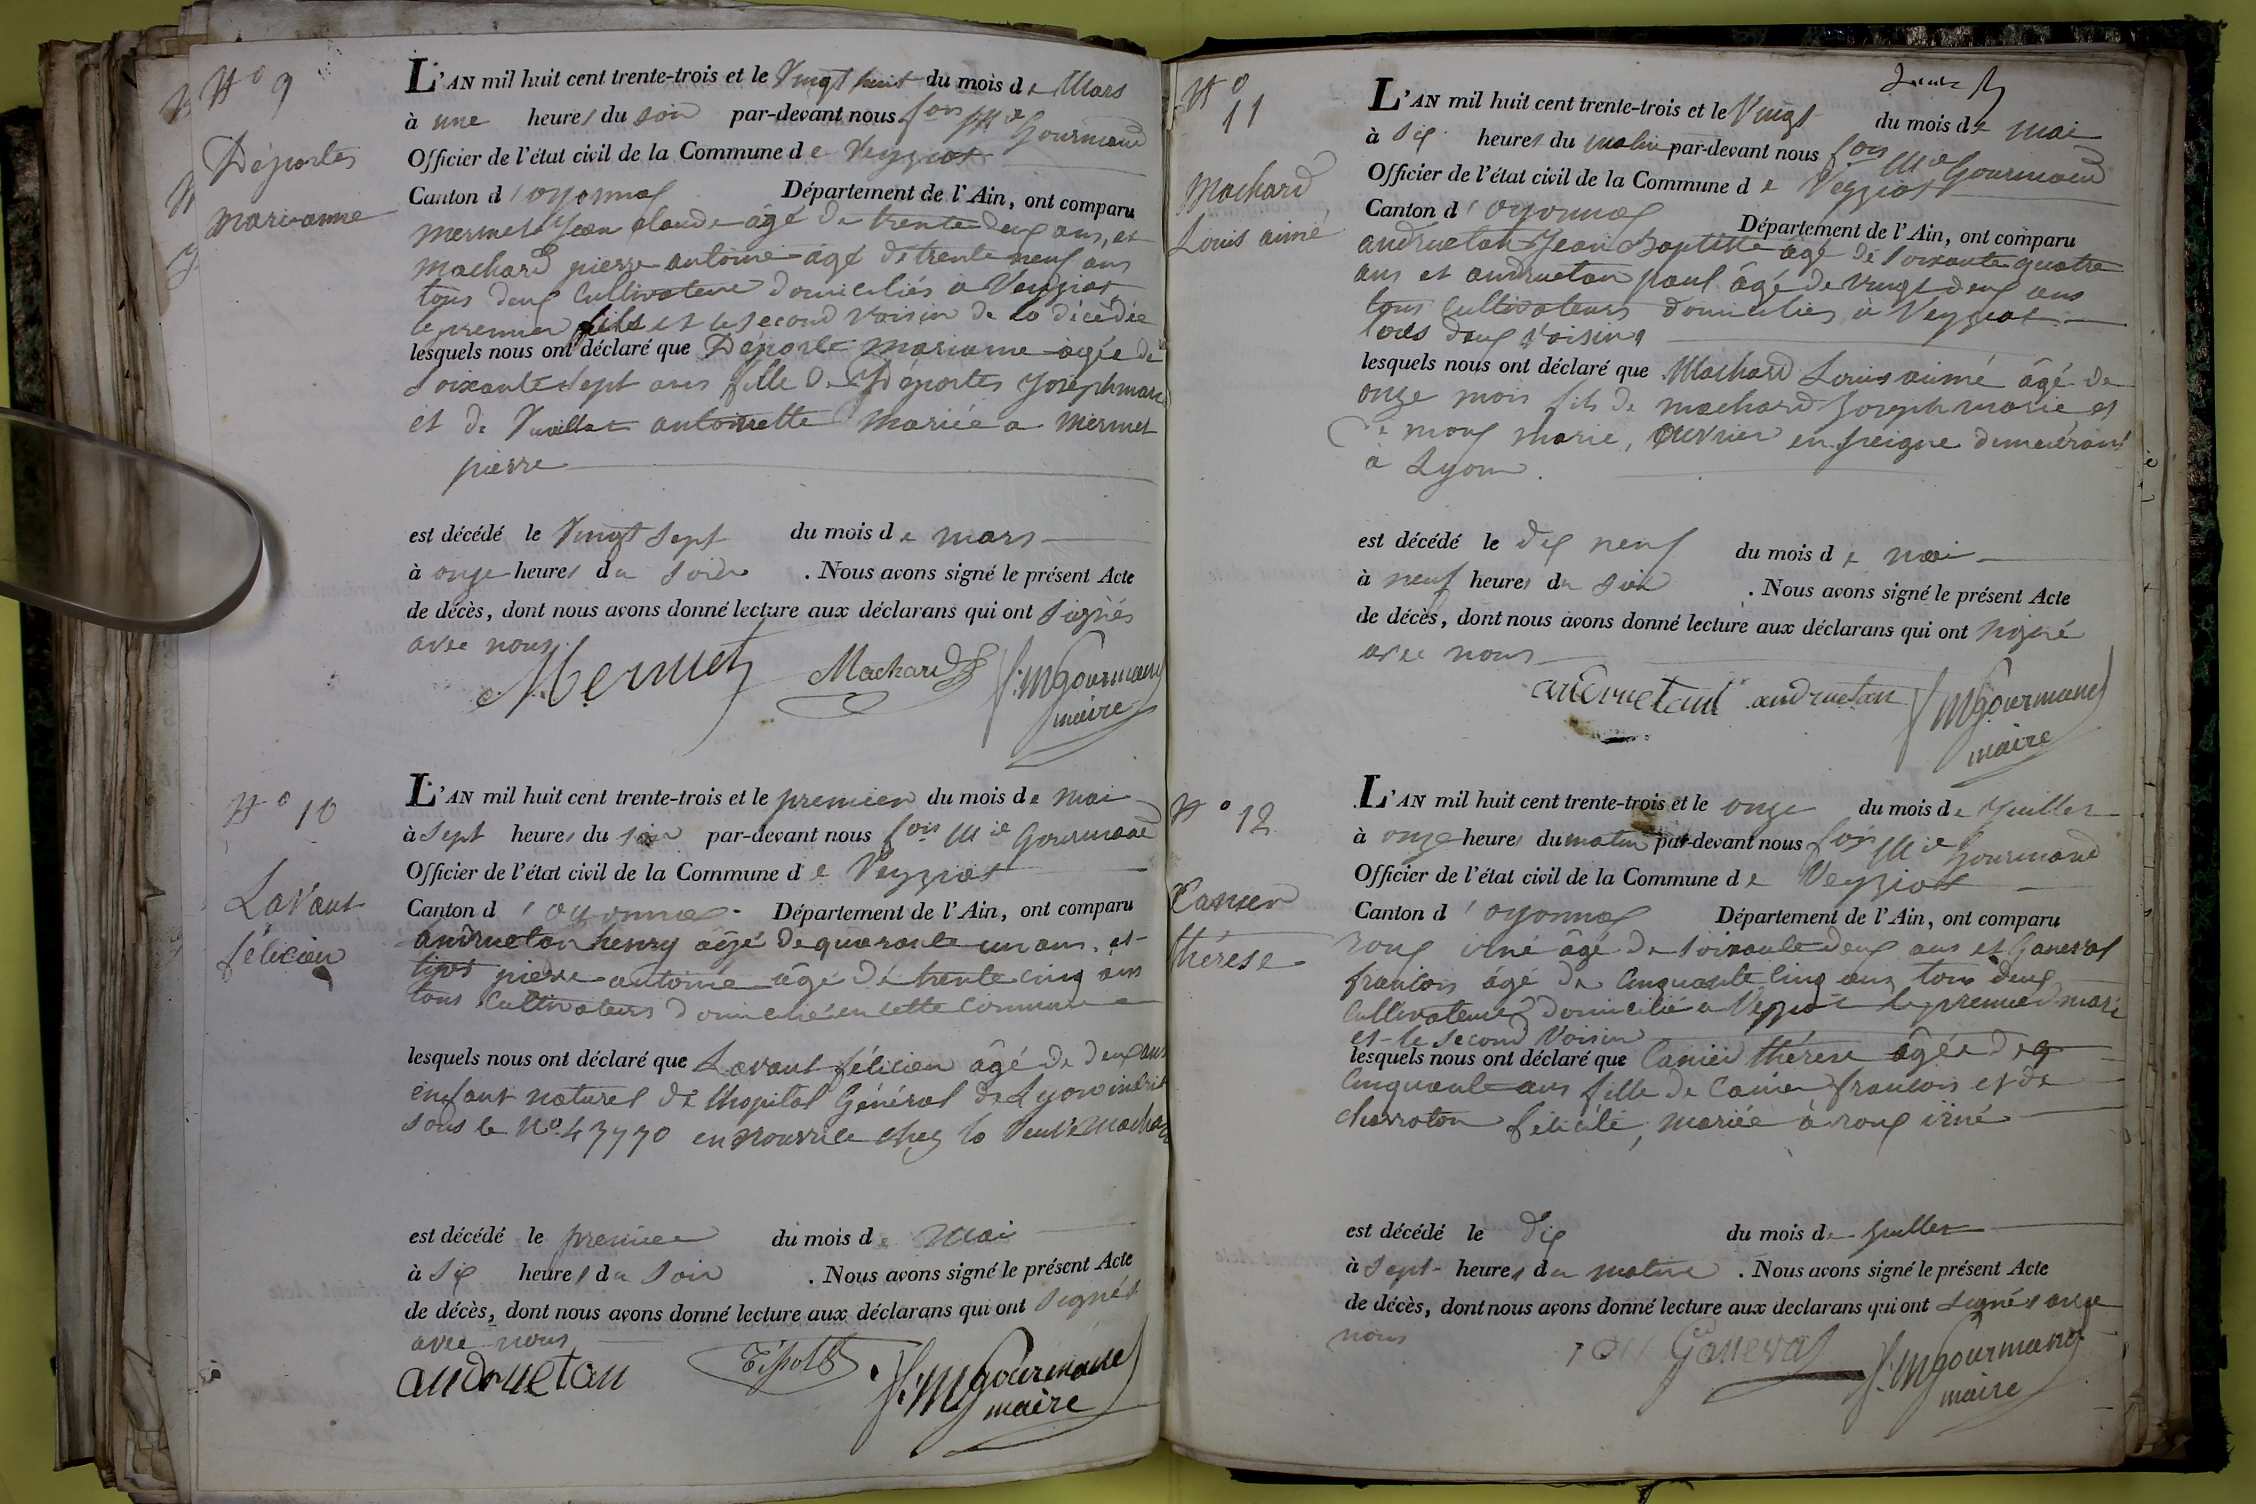 N° 9
Déportes
marianne
L'AN mil huit cent trente-trois et le Vingt huit du mois de Mars
à une heures du soir par-devant nous fois Mie Gourmand
Officier de l'état civil de la Commune de Veyziat
Canton d'oyonnax Département de l'Ain, ont comparu
mermet Jean claude âgé de trente deux ans, et
machard pierre antoine âgé de trente neuf ans
tous deux Cultivateurs domiciliés à Veyziat
le premier fils et le second voisin de la décédée
lesquels nous ont déclaré que Déporte marianne âgée de
soixante sept ans fille de Déportes Joseph marie
et de Vuaillat antoinette mariée a mermet
pierre
est décédé le Vingt sept du mois de mars
à onze heures du soir . Nous avons signé le présent Acte
de décès, dont nous avons donné lecture aux déclarans qui ont signés
avec nous
Mermet Machard f.m Gourmand
maire
N° 10
Lavant
félicien
L'AN mil huit cent trente-trois et le premier du mois de mai
à sept heures du soir par-devant nous fois Mie Gourmand
Officier de l'état civil de la Commune de Veyziat
Canton d'oyonnax Département de l'Ain, ont comparu
andruetan henry âgé de quarante un ans, et
pierre antoine âgé de trente cinq ans
tous cultivateurs domicilié en cette commune
lesquels nous ont déclaré que Lavant félicien âgé de deux ans
enfant naturel de l'hopital Général de Lyon inscrit
sous le N° 43770 en nourrice chez la veuve Machard
est décédé le premier du mois de mai
à six heures du soir . Nous avons signé le présent Acte
de décès, dont nous avons donné lecture aux déclarans qui ont signés
avec nous
andruetan f.m Gourmand
maire
N° 11
Machard
Louis aimé
L'AN mil huit cent trente-trois et le Vingt du mois de mai
à six heures du matin par-devant nous fois Mie Gourmand
Officier de l'état civil de la Commune de Veyziat
Canton d'oyonnax Département de l'Ain, ont comparu
andruetan Jean Baptiste âgé de soixante quatre
ans et andruetan paul âgé de vingt deux ans
tous cultivateurs domiciliés à Veyziat
tous deux voisins
lesquels nous ont déclaré que Machard Louis aimé âgé de
onze mois fils de machard Joseph marie et
de marie, ouvrier en peigne demeurant
à Lyon
est décédé le dix neuf du mois de mai
à neuf heures du soir . Nous avons signé le présent Acte
de décès, dont nous avons donné lecture aux déclarans qui ont signé
avec nous
andruetan andruetan f.m Gourmand
maire
N° 12
Canier
thérèse
L'AN mil huit cent trente-trois et le onze du mois de Juillet
à onze heures du matin par-devant nous fois Mie Gourmand
Officier de l'état civil de la Commune de Veyziat
Canton d'oyonnax Département de l'Ain, ont comparu
roux iréné âgé de soixante deux ans et Ganeval
francois âgé de Cinquante cinq ans tous deux
cultivateurs domicilié a Veyziat le premier mari
et le second Voisin
lesquels nous ont déclaré que Canier thérèse âgée de
Cinquante ans fille de Canier francois et de
charroton félicité, mariée à roux iréné
est décédé le dix du mois de juillet
à sept heures du matin . Nous avons signé le présent Acte
de décès, dont nous avons donné lecture aux declarans qui ont signés avec
nous
Ganeval f.m Gourmand
maire